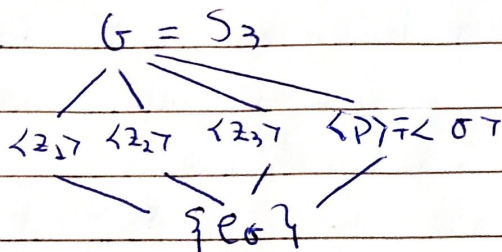 G = S₃
<z₁> <z₂> <z₃> <P> = < σ >
{e_G}